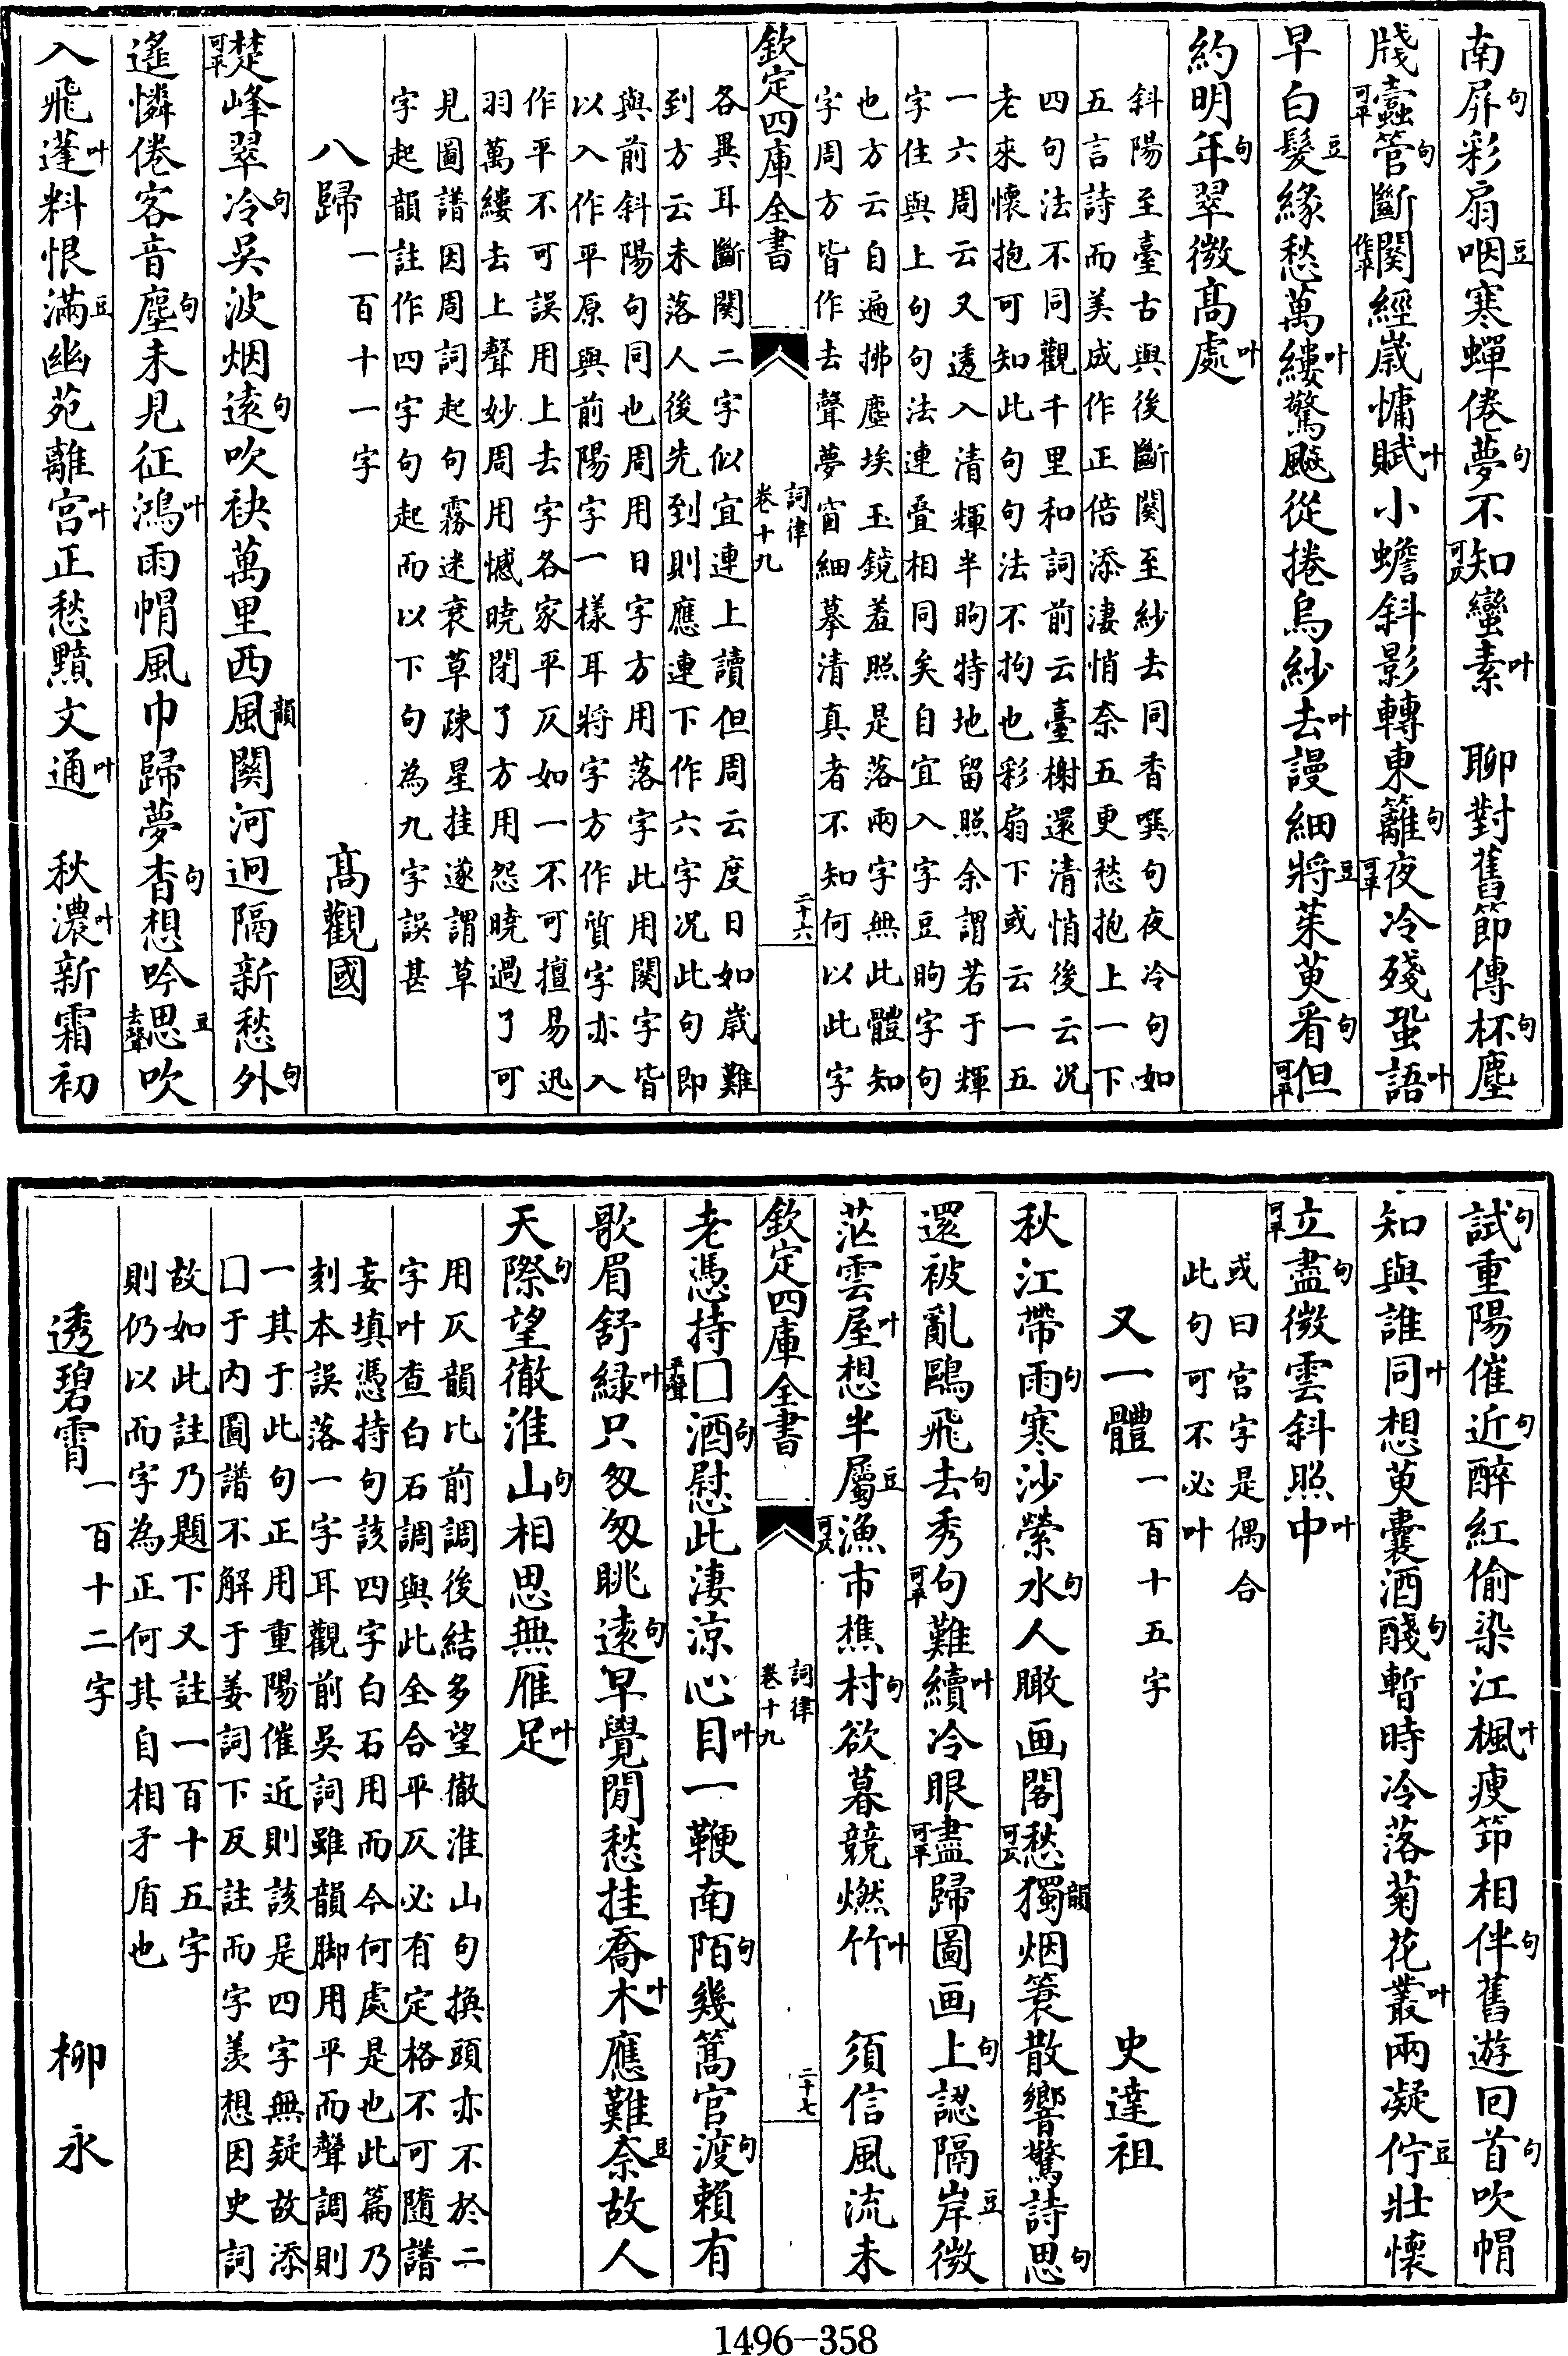 南屏句彩扇咽豆寒蟬倦夢句不知可仄蠻素叶　聊對舊節傳杯句塵
牋蠹可平管句斷闋作平經歲慵賦叶小蟾斜影轉東籬句夜可平冷殘蛩語叶
早白髮豆緣愁萬縷叶驚飈從捲烏紗去叶謾細將豆茱萸看句但可平
約明年句翠微高處叶
斜陽至臺古與後斷闋至紗去同香噀句夜冷句如
五言詩而美成作正倍添淒悄奈五更愁抱上一下
四句法不同觀千里和詞前云臺榭還清悄後云况
老來懷抱可知此句句法不拘也彩扇下或云一五
一六周云又透入清輝半晌特地留照余謂若于輝
字住與上句句法連疊相同矣自宜入字豆晌字句
也方云自遍拂塵埃玉鏡羞照是落兩字無此體知
字周方皆作去聲夢窗細摹清真者不知何以此字
欽定四庫全書　詞律卷十九　二十六
各異耳斷闋二字似宜連上讀但周云度日如歲難
到方云未落人後先到則應連下作六字况此句即
與前斜陽句同也周用日字方用落字此用闋字皆
以入作平原與前陽字一樣耳將字方作質字亦入
作平不可誤用上去字各家平仄如一不可擅易迅
羽萬縷去上聲妙周用憾曉閉了方用怨曉過了可
見圖譜因周詞起句霧迷衰草疎星挂遂謂草
字起韻註作四字句起而以下句為九字誤甚
八歸一百十一字　高觀國
楚可平峰翠冷句吳波烟遠句吹袂萬里西風韻闗河迥隔新愁外句
遙憐倦客音塵句未見征鴻叶雨帽風巾歸夢杳句想吟思去聲豆吹
入飛蓬叶料恨滿豆幽苑離宮叶正愁黯文通叶　秋濃叶新霜初
試句重陽催近句醉紅偷染江楓叶瘦笻相伴句舊遊回首句吹帽
知與誰同叶想萸囊酒醆句暫時冷落菊花叢叶兩凝佇豆壯懷
立可平盡句微雲斜照中叶
或曰宮字是偶合
此句可不必叶
又一體一百十五字　史達祖
秋江帶雨句寒沙縈水句人瞰画閣愁可仄獨韻烟簑散響驚詩思句
還被亂鷗飛去句秀句可平難續叶冷眼盡可平歸圖画上句認隔岸豆微
茫雲屋叶想半屬豆漁可仄市樵村句欲暮競燃竹叶　須信風流未
欽定四庫全書　詞律卷十九　二十七
老憑持□平聲酒句慰此淒涼心目叶一鞭南陌句幾篙官渡句賴有
歌眉舒綠叶只匆匆眺遠句早覺閒愁挂喬木叶應難奈豆故人
天際句望徹淮山句相思無雁足叶
用仄韻比前調後結多望徹淮山句換頭亦不於二
字叶查白石調與此全合平仄必有定格不可隨譜
妄填憑持句該四字白石用而今何處是也此篇乃
刻本誤落一字耳觀前吳詞雖韻脚用平而聲調則
一其于此句正用重陽催近則該是四字無疑故添
□于內圖譜不解于姜詞下反註而字羨想因史詞
故如此註乃題下又註一百十五字
則仍以而字為正何其自相矛盾也
透碧霄一百十二字　柳永
1496-358